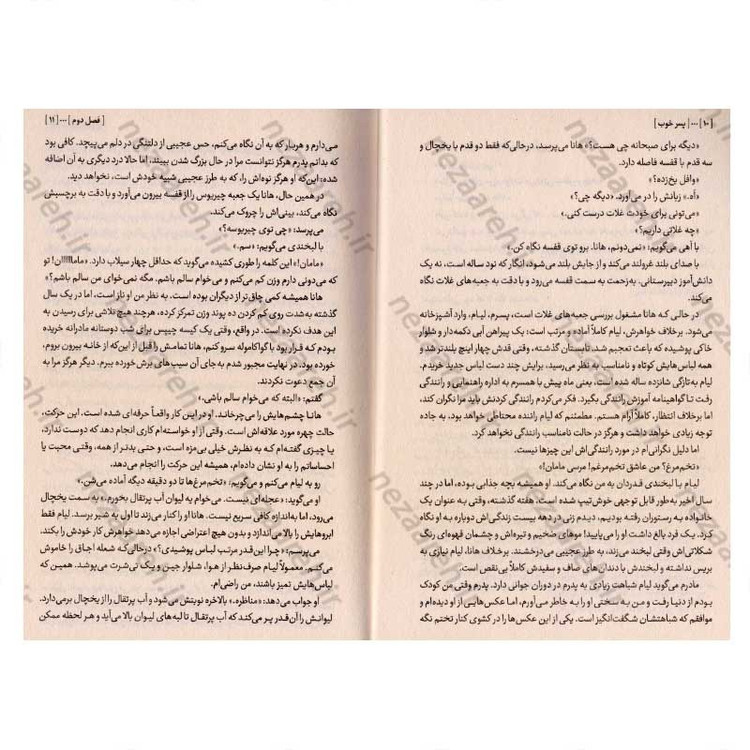 [ ۱۰ ] ... [ پسر خوب ]
«دیگه برای صبحانه چی هست؟» هانا می‌پرسد، درحالی‌که فقط دو قدم با یخچال و
سه قدم با قفسه فاصله دارد.
«وافل یخ‌زده؟»
«اَه.» زبانش را در می‌آورد. «دیگه چی؟»
«می‌تونی برای خودت غلات درست کنی.»
«چه غلاتی داریم؟»
با آهی می‌گویم: «نمی‌دونم، هانا. برو توی قفسه نگاه کن.»
با صدای بلند غرولند می‌کند و از جایش بلند می‌شود، انگار که نود ساله است، نه یک
دانش‌آموز دبیرستانی. به‌زحمت به سمت قفسه می‌رود و با دقت به جعبه‌های غلات نگاه
می‌کند.
در حالی که هانا مشغول بررسی جعبه‌های غلات است، پسرم، لیام، وارد آشپزخانه
می‌شود. برخلاف خواهرش، لیام کاملاً آماده و مرتب است: یک پیراهن آبی دکمه‌دار و شلوار
خاکی پوشیده که باعث تعجبم شد. تابستان گذشته، وقتی قدش چهار اینچ بلندتر شد و
همه لباس‌هایش کوتاه و نامناسب به نظر می‌رسید، برایش چند دست لباس جدید خریدم.
لیام به‌تازگی شانزده ساله شده است، یعنی ماه پیش با همسرم به اداره راهنمایی و رانندگی
رفت تا گواهینامه آموزش رانندگی بگیرد. فکر می‌کردم رانندگی کردنش باید مرا نگران کند،
اما برخلاف انتظار، کاملاً آرام هستم. مطمئنم که لیام راننده محتاطی خواهد بود، به جاده
توجه زیادی خواهد داشت و هرگز در حالت نامناسب رانندگی نخواهد کرد.
اما دلیل نگرانی‌ام در مورد رانندگی‌اش این چیزها نیست.
«تخم‌مرغ؟ من عاشق تخم‌مرغم! مرسی مامان!»
لیام با لبخندی قدردان به من نگاه می‌کند. او همیشه بچه جذابی بوده، اما در چند
سال اخیر به‌طور قابل توجهی خوش‌تیپ شده است. هفته گذشته، وقتی به عنوان یک
خانواده به رستوران رفته بودیم، دیدم زنی در دهه بیست زندگی‌اش دوباره به او نگاه
کرد. یک فرد بالغ داشت او را می‌پایید! موهای ضخیم و تیره‌اش و چشمان قهوه‌ای رنگ
شکلاتی‌اش وقتی لبخند می‌زند، به طرز عجیبی می‌درخشند. برخلاف هانا، لیام نیازی به
بریس نداشته و لبخندش با دندان‌های صاف و سفیدش کاملاً بی‌نقص است.
مادرم می‌گوید لیام شباهت زیادی به پدرم در دوران جوانی دارد. پدرم وقتی من کودک
بودم از دنیا رفت و من به سختی او را به خاطر می‌آورم، اما عکس‌هایی از او دیده‌ام و
موافقم که شباهتشان شگفت‌انگیز است. یکی از این عکس‌ها را در کشوی کنار تختم نگه
[ فصل دوم ] ... [ ۱۱ ]
می‌دارم و هربار که به آن نگاه می‌کنم، حس عجیبی از دلتنگی در دلم می‌پیچد. کافی بود
که بدانم پدرم هرگز نتوانست مرا در حال بزرگ شدن ببیند، اما حالا درد دیگری به آن اضافه
شده: این‌که او هرگز نوه‌اش را، که به طرز عجیبی شبیه خودش است، نخواهد دید.
در همین حال، هانا یک جعبه چیریوس را از قفسه بیرون می‌آورد و با دقت به برچسبش
نگاه می‌کند، بینی‌اش را چروک می‌کند.
می‌پرسد: «چی توی چیریوسه؟»
با لبخندی می‌گویم: «سم.»
«مامان!» این کلمه را طوری کشیده می‌گوید که حداقل چهار سیلاب دارد. «ماماااااان! تو
که می‌دونی دارم وزن کم می‌کنم و می‌خوام سالم باشم. مگه نمی‌خوای من سالم باشم؟»
هانا همیشه کمی چاق‌تر از دیگران بوده است. به نظر من او ناز است، اما در یک سال
گذشته به‌شدت روی کم کردن ده پوند وزن تمرکز کرده، هرچند هیچ تلاشی برای رسیدن به
این هدف نکرده است. در واقع، وقتی یک کیسه چیپس برای شب دوستانه مادرانه خریده
بودم که قرار بود با گواکاموله سرو کنم، هانا تمامش را قبل از این‌که از خانه بیرون بروم،
خورده بود. در نهایت مجبور شدم به جای آن سیب های برش خورده ببرم. دیگر هرگز مرا به
آن جمع دعوت نکردند.
گفتم: «البته که می‌خوام سالم باشی.»
هانا چشم‌هایش را می‌چرخاند. او در این کار واقعاً حرفه‌ای شده است. این حرکت،
حالت چهره مورد علاقه‌اش است. وقتی از او خواسته‌ام کاری انجام دهد که دوست ندارد،
یا چیزی گفته‌ام که به نظرش خیلی بی‌مزه است، و حتی بدتر از همه، وقتی محبت یا
احساساتم را به او نشان داده‌ام، همیشه این حرکت را انجام می‌دهد.
رو به لیام می‌کنم و می‌گویم: «تخم‌مرغ‌ها تا دو دقیقه دیگه آماده می‌شن.»
او می‌گوید: «عجله‌ای نیست. می‌خوام یه لیوان آب پرتقال بخورم.» به سمت یخچال
می‌رود، اما به‌اندازه کافی سریع نیست. هانا او را کنار می‌زند تا اول به شیر برسد. لیام فقط
ابروهایش را بالا می‌اندازد و بدون هیچ اعتراضی اجازه می‌دهد خواهرش کار خودش را بکند.
می‌پرسم: «چرا این‌قدر مرتب لباس پوشیدی؟» درحالی‌که شعله اجاق را خاموش
می‌کنم. معمولاً لیام صرف‌نظر از هوا، شلوار جین و یک تی‌شرت می‌پوشد. همین که
لباس‌هایش تمیز باشند، من راضی‌ام.
او جواب می‌دهد: «مناظره.» بالاخره نوبتش می‌شود و آب پرتقال را از یخچال برمی‌دارد.
لیوانش را آن‌قدر پر می‌کند که آب پرتقال تا لبه‌های لیوان بالا می‌آید و هر لحظه ممکن
nezaareh.ir